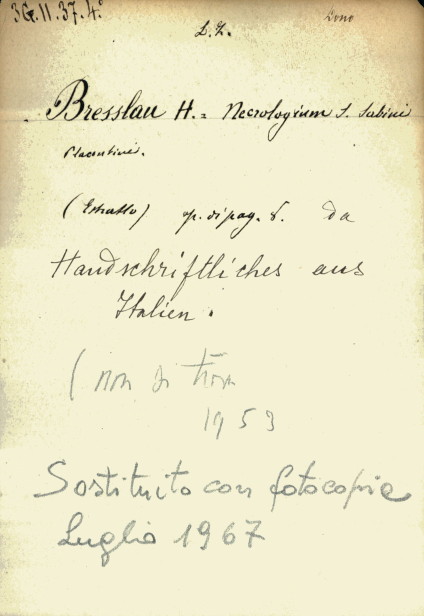 3G.11.37.4º
Dono
L. Z.
Bresslau H. = Necrologium S. Sabini
Placentini.
(Estratto) op. di pag. 8. da
Handschriftliches aus
Italien.
(non si trova
1953
Sostituito con fotocopie
Luglio 1967